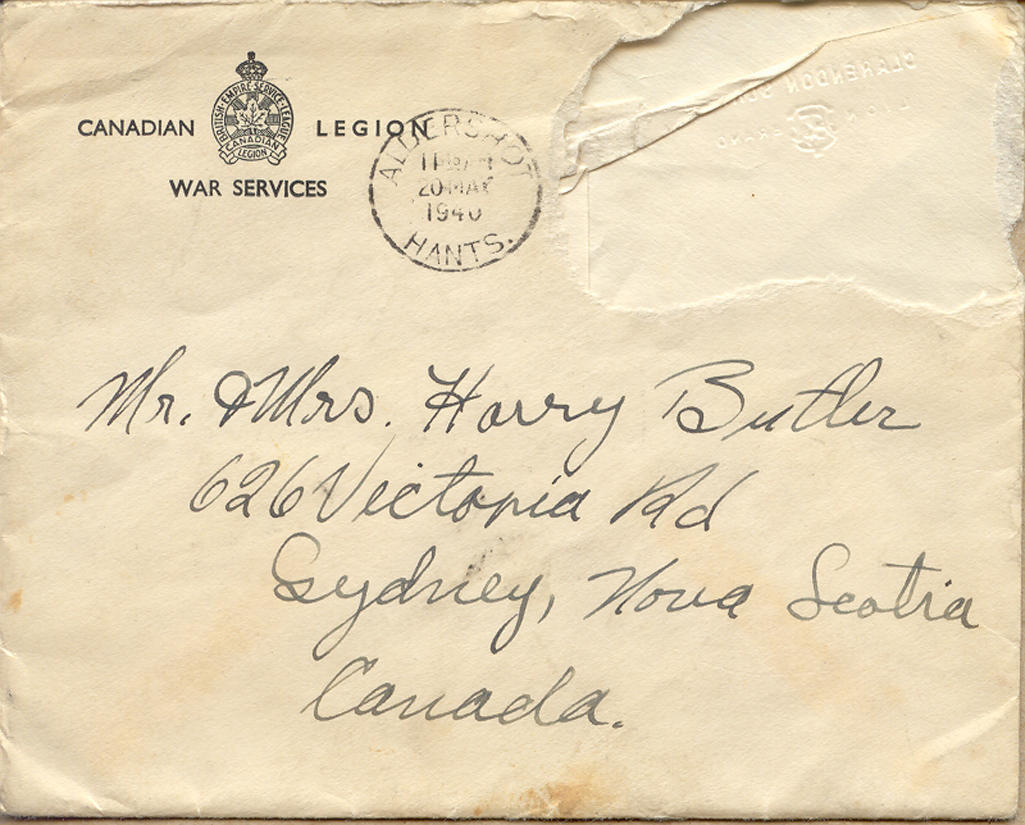 CANADIAN LEGION
BRITISH·EMPIRE·SERVICE·LEAGUE
CANADIAN
LEGION
WAR SERVICES
ALDERSHOT
20 MAY
1940
HANTS.
CLARENDON
Mr. & Mrs. Harry Butler
626 Victoria Rd
Sydney, Nova Scotia
Canada.